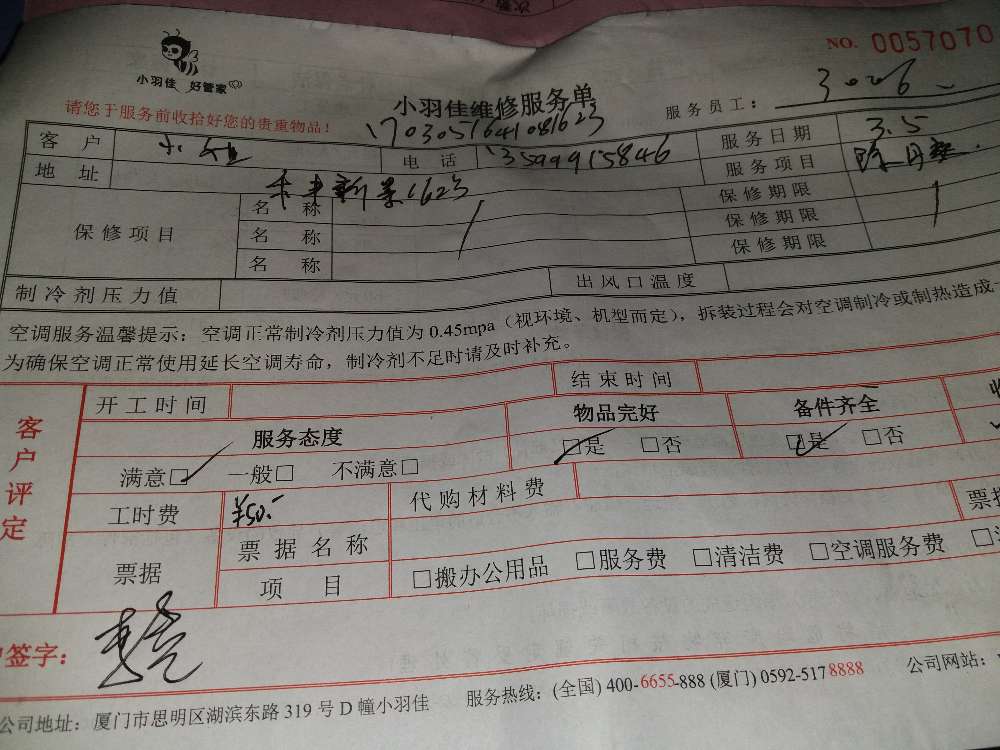 NO. 0057070
小羽佳 好管家
小羽佳维修服务单
服务员工：
请您于服务前收拾好您的贵重物品！
客户 电话 13599915846 服务日期 3.5
地址 1623 服务项目
保修项目 名称 保修期限
名称 保修期限
名称 保修期限
制冷剂压力值 出风口温度
空调服务温馨提示：空调正常制冷剂压力值为0.45mpa（视环境、机型而定），拆装过程会对空调制冷或制热造成
为确保空调正常使用延长空调寿命，制冷剂不足时请及时补充。
客户评定
开工时间 结束时间
服务态度 物品完好 备件齐全
满意□ 一般□ 不满意□ □是 □否 □是 □否
工时费 ¥50.- 代购材料费
票据 票据名称
项目 □搬办公用品 □服务费 □清洁费 □空调服务费
签字：
公司地址：厦门市思明区湖滨东路319号D幢小羽佳 服务热线：(全国) 400-6655-888 (厦门) 0592-5178888 公司网站：